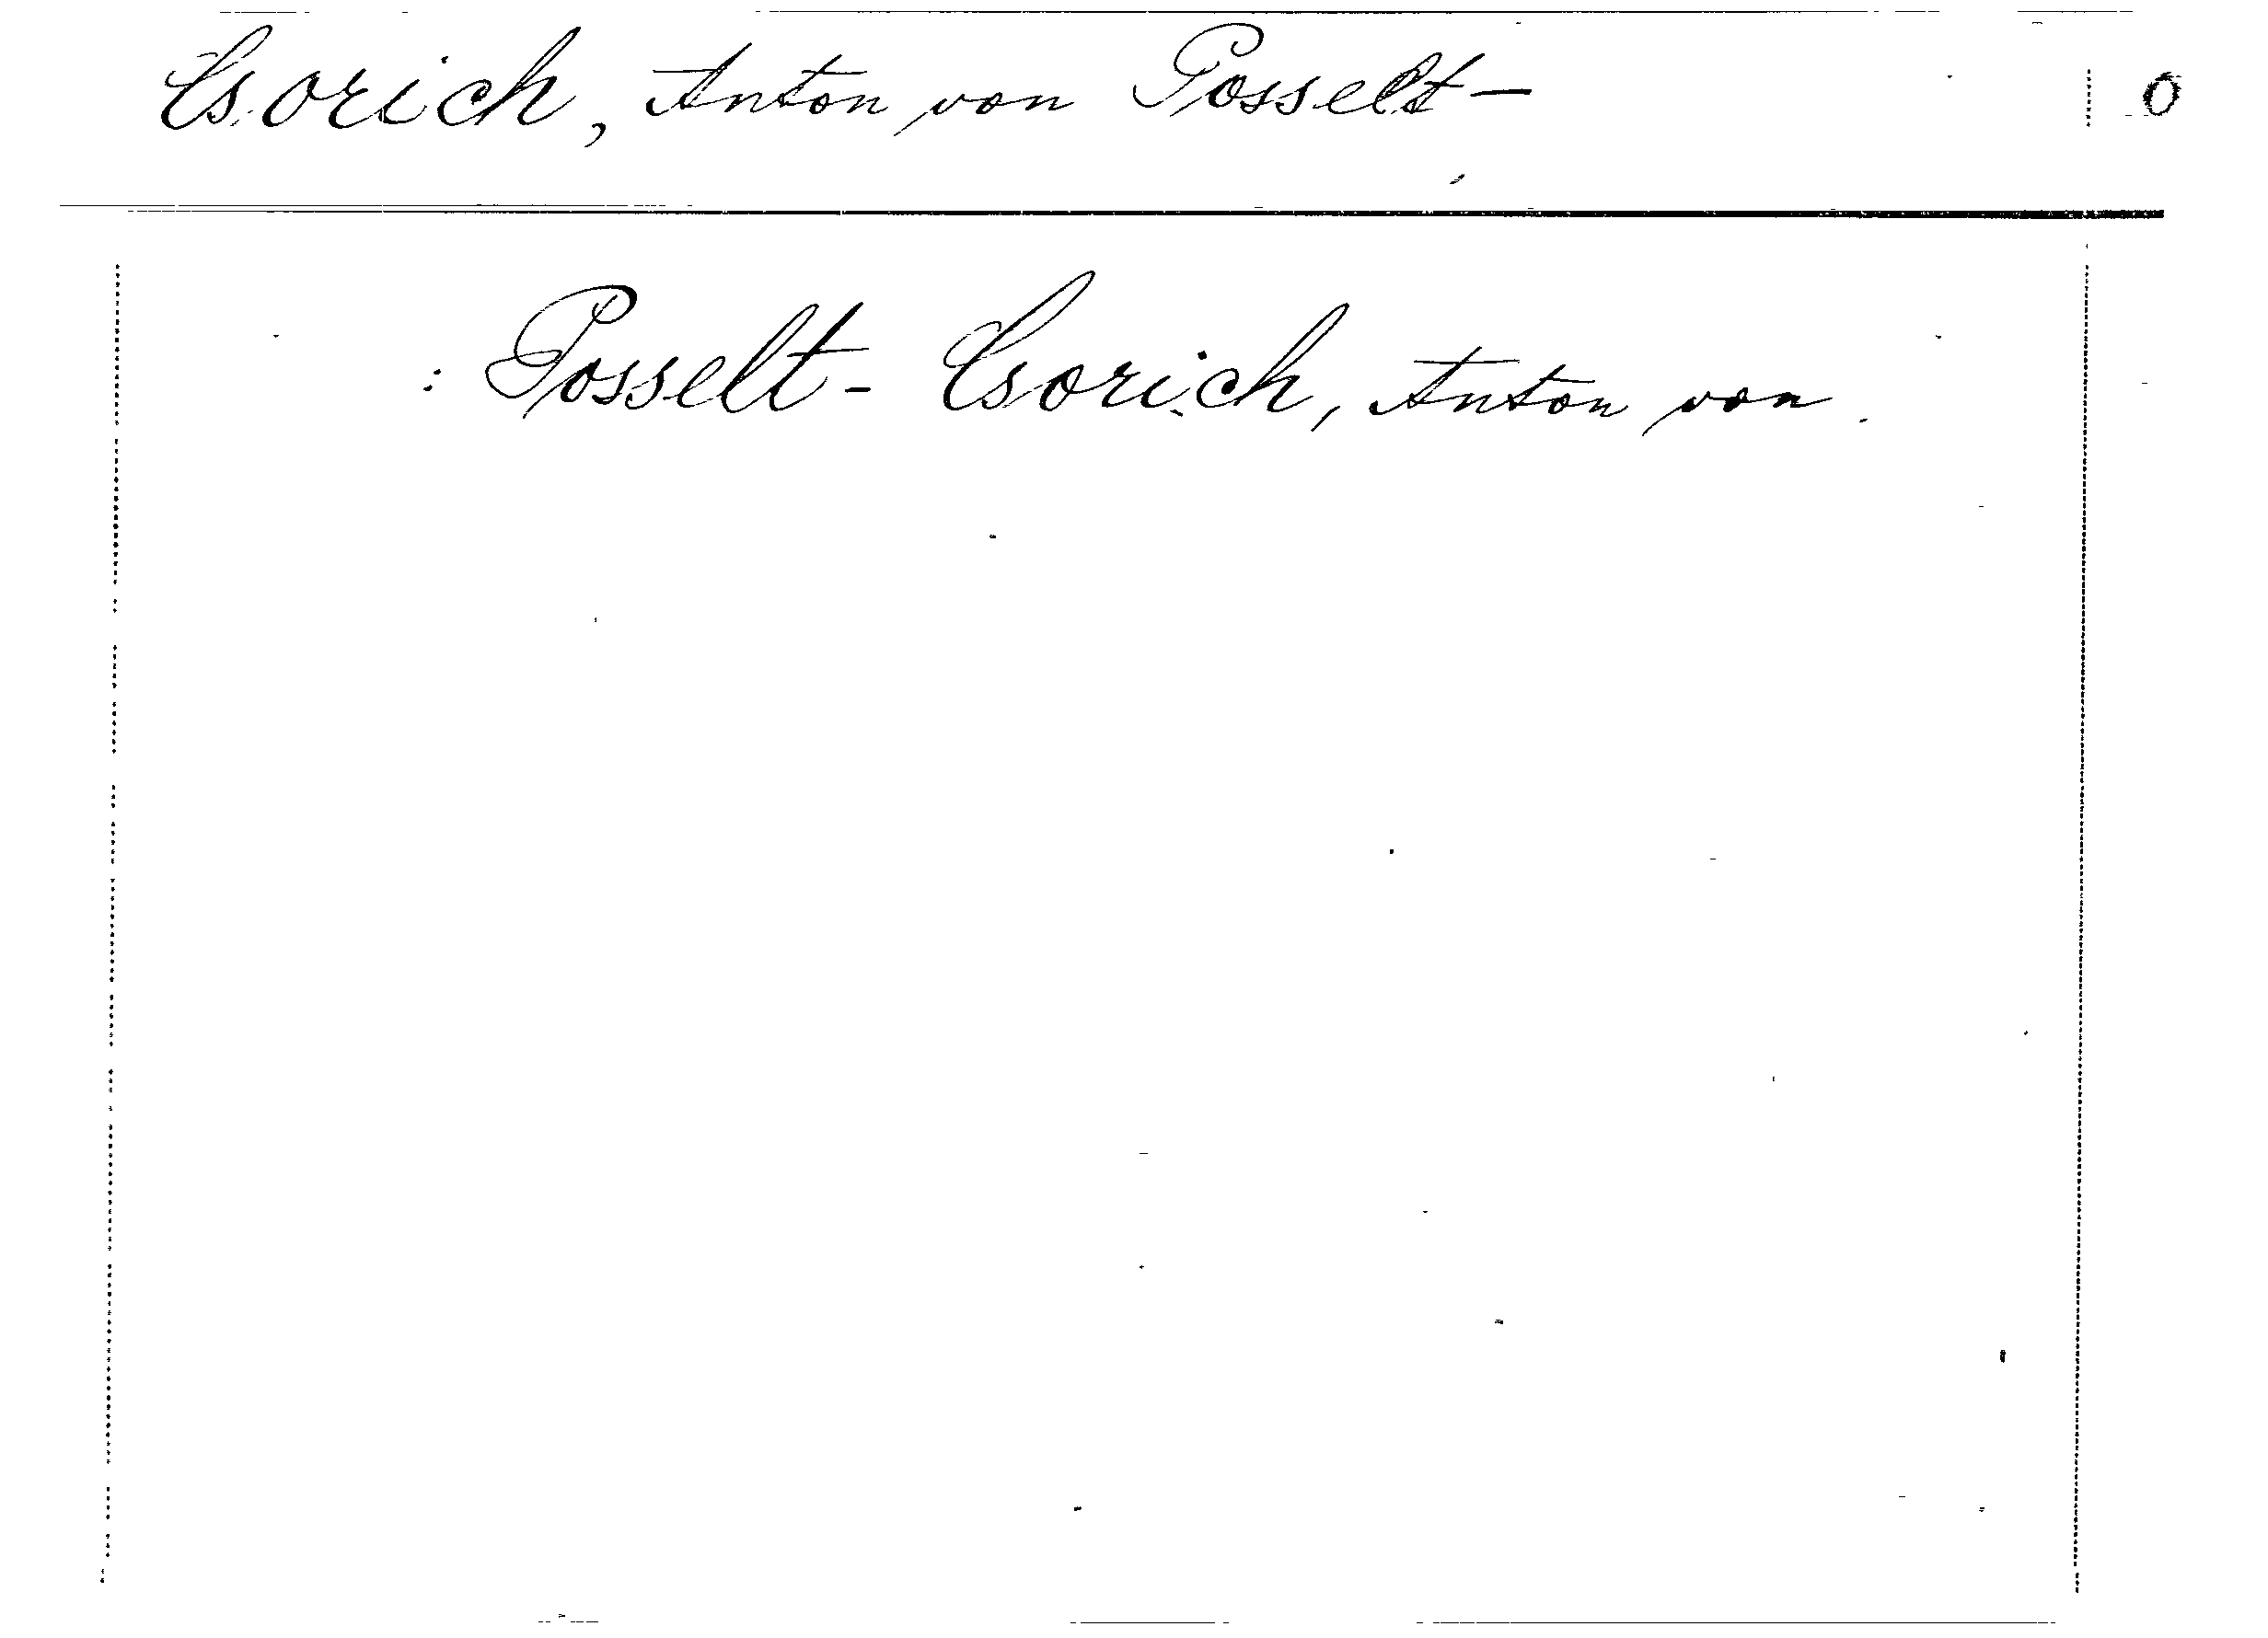 Csorich, Anton von Posselt- 0
: Posselt-Csorich, Anton von.